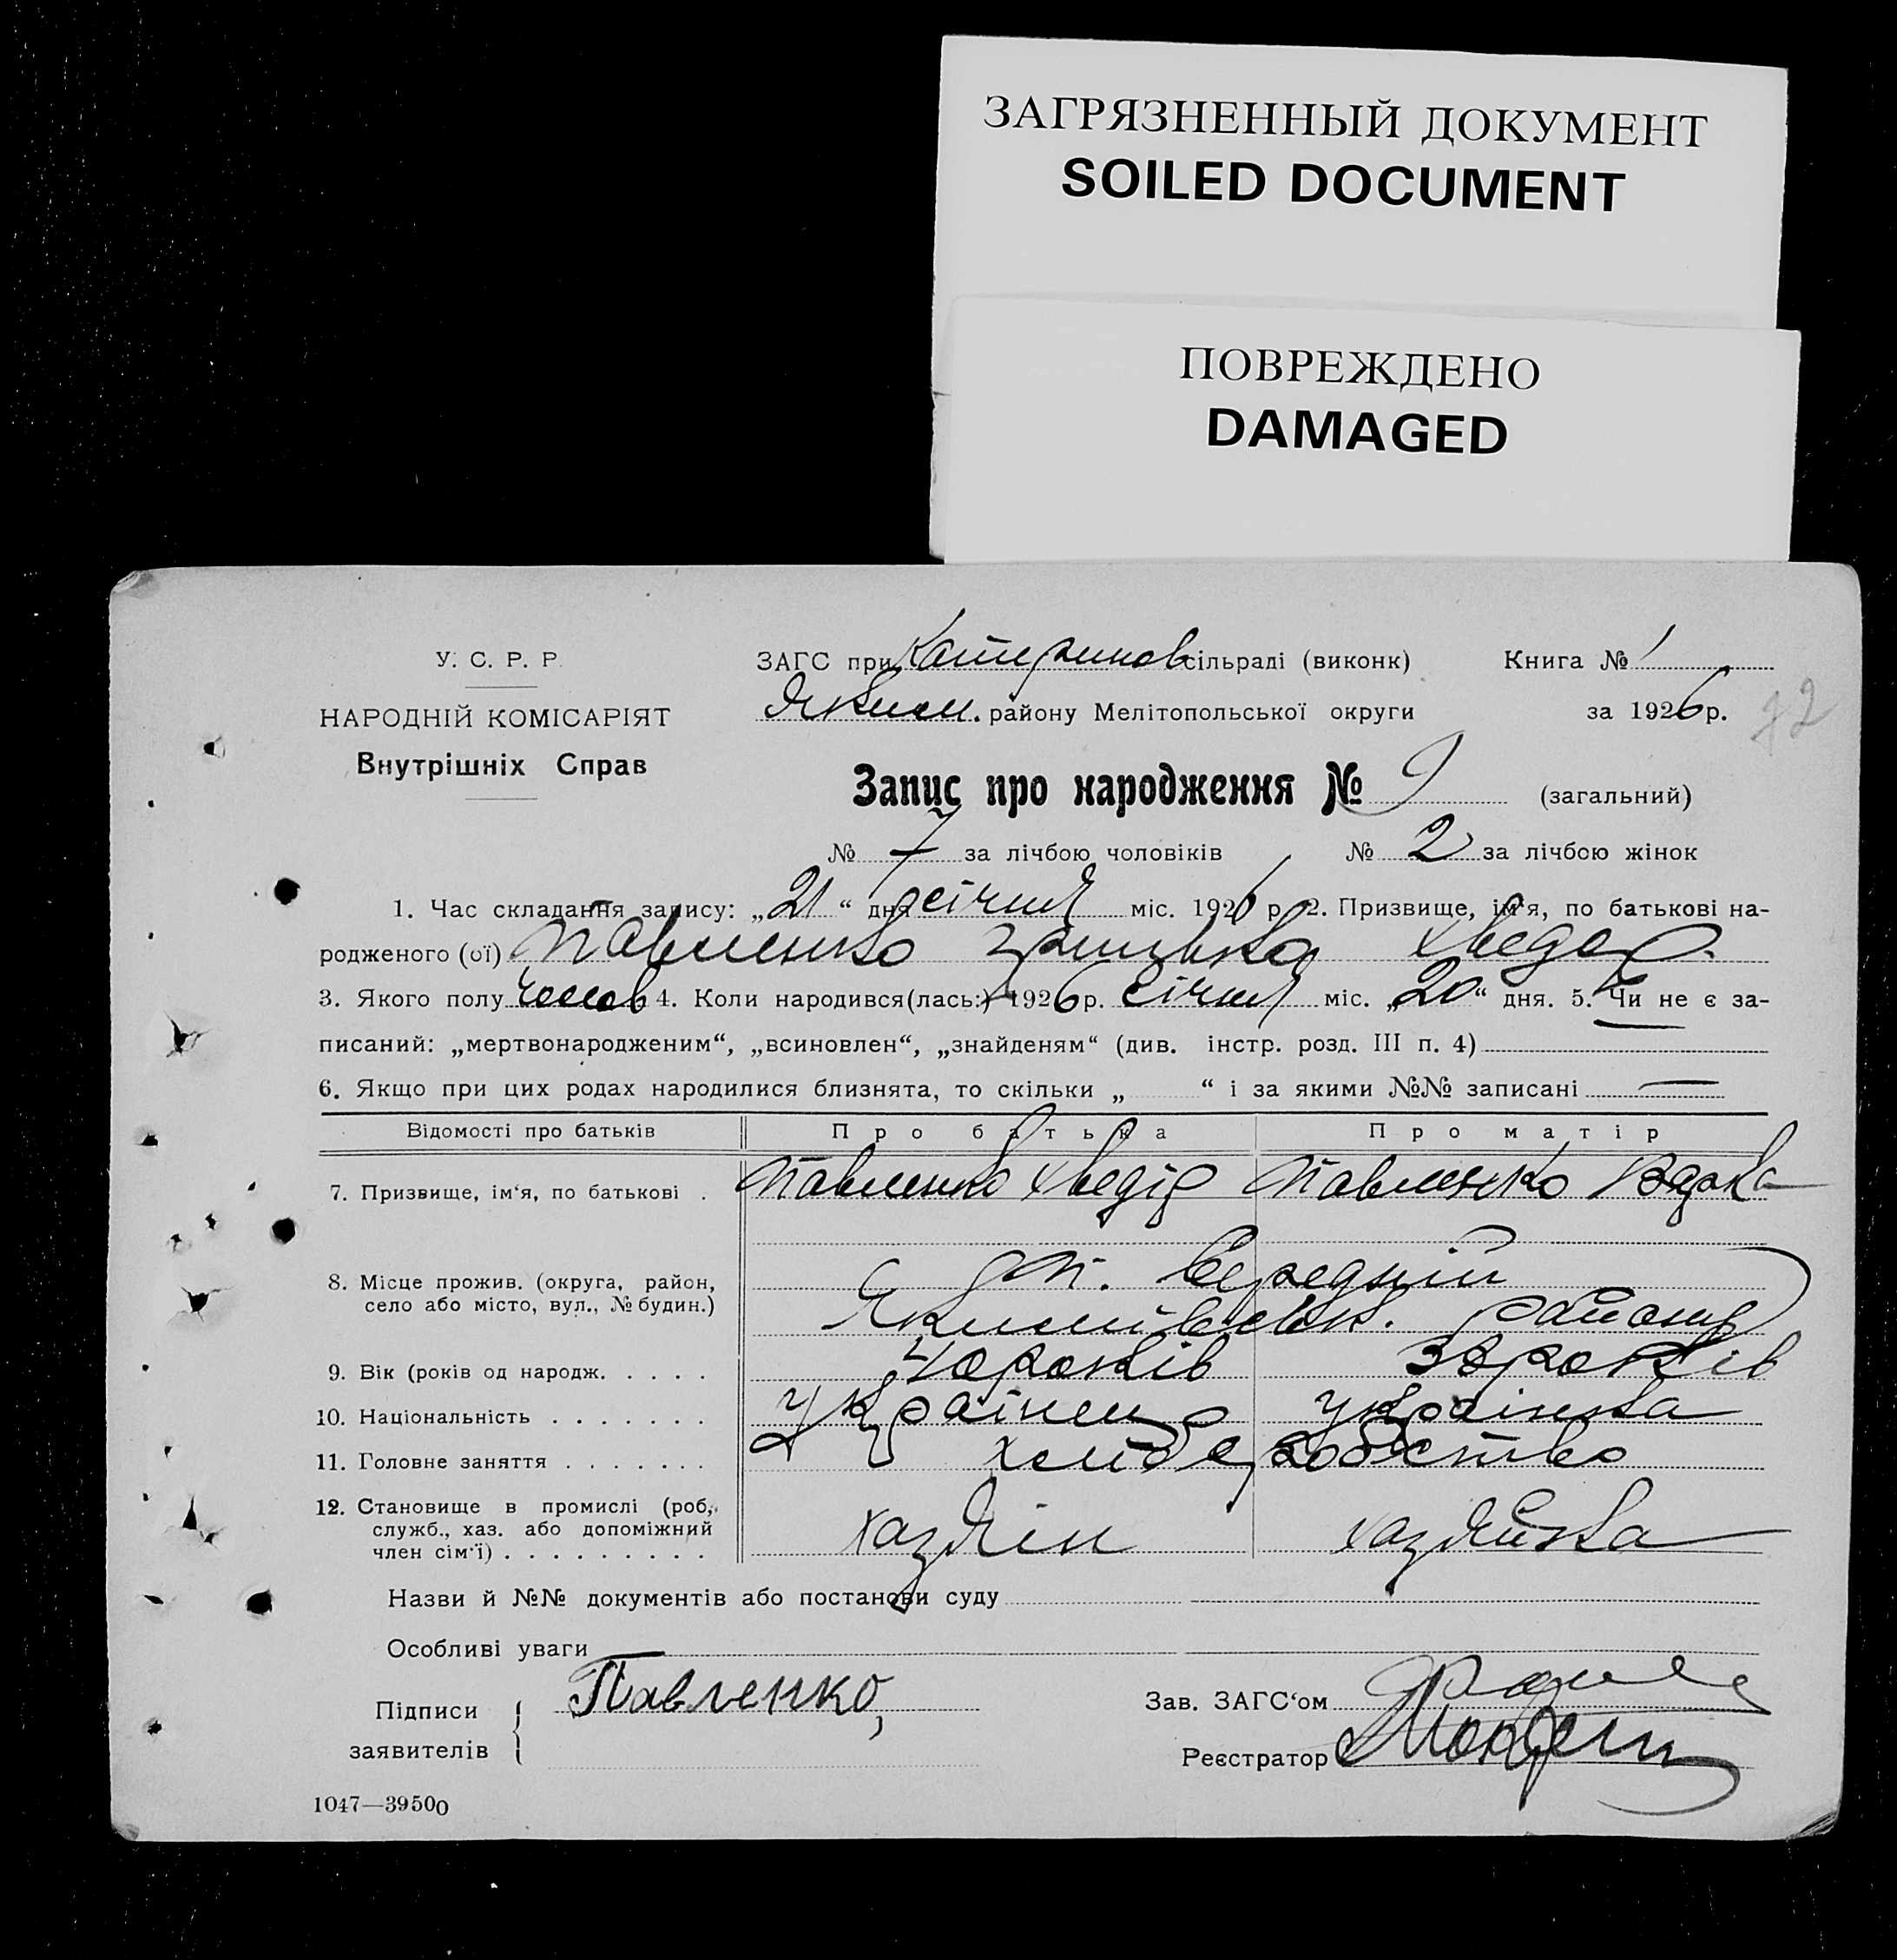 ЗАГРЯЗНЕННЫЙ ДОКУМЕНТ
SOILED DOCUMENT
ПОВРЕЖДЕНО
DAMAGED
У. С. Р. Р.
НАРОДНІЙ КОМІСАРІЯТ
Внутрішніх Справ
ЗАГС при Катеринов сільраді (виконк)
Книга № 1
Яким. району Мелітопольської округи
за 1926 р.
72
Запис про народження № 9 (загальний)
№ 7 за лічбою чоловіків № 2 за лічбою жінок
1. Час складання запису: „21“ дня січня міс. 1926 р. 2. Призвище, ім‘я, по батькові на-
родженого (ої) Павленко Грицько Хведор.
3. Якого полу чолов 4. Коли народився(лась:) 1926 р. січня міс. „20“ дня. 5. Чи не є за-
писаний: „мертвонародженим“, „всиновлен“, „знайденям“ (див. інстр. розд. III п. 4) —
6. Якщо при цих родах народилися близнята, то скільки „ “ і за якими №№ записані —
Відомості про батьків Про батька Про матір
7. Призвище, ім‘я, по батькові . Павленко Хведір Павленко Вядка
8. Місце прожив. (округа, район,
село або місто, вул., № будин.)
Якимівськ. району
9. Вік (років од народж. . . . . 40 років 38 років
10. Національність . . . . . . . Українець українка
11. Головне заняття . . . . . . . хлібо робство
12. Становище в промислі (роб,
служб., хаз. або допоміжний
член сім‘ї) . . . . . . . . . хазяїн хазяйка
Назви й №№ документів або постанови суду
Особливі уваги
Підписи
заявителів
Павленко,
Зав. ЗАГС‘ом
Реєстратор
1047—39500